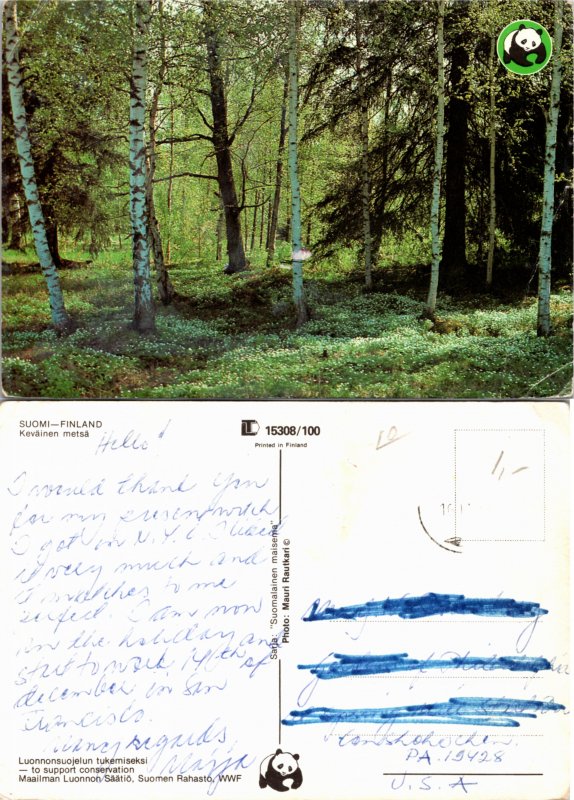 SUOMI—FINLAND
Keväinen metsä
15308/100
Printed in Finland
Hello!
I would thank You
for my present wich
I got in N.Y.C. I used
it very much and
I matches to me
perfect. I am now
on the holiday and
start to work 14th of
december in San
Francisco.
regards,
Maija
Sarja: "Suomalainen maisema"
Photo: Mauri Rautkari ©
1,-
PA. 19428
U.S.A
Luonnonsuojelun tukemiseksi
— to support conservation
Maailman Luonnon Säätiö, Suomen Rahasto, WWF